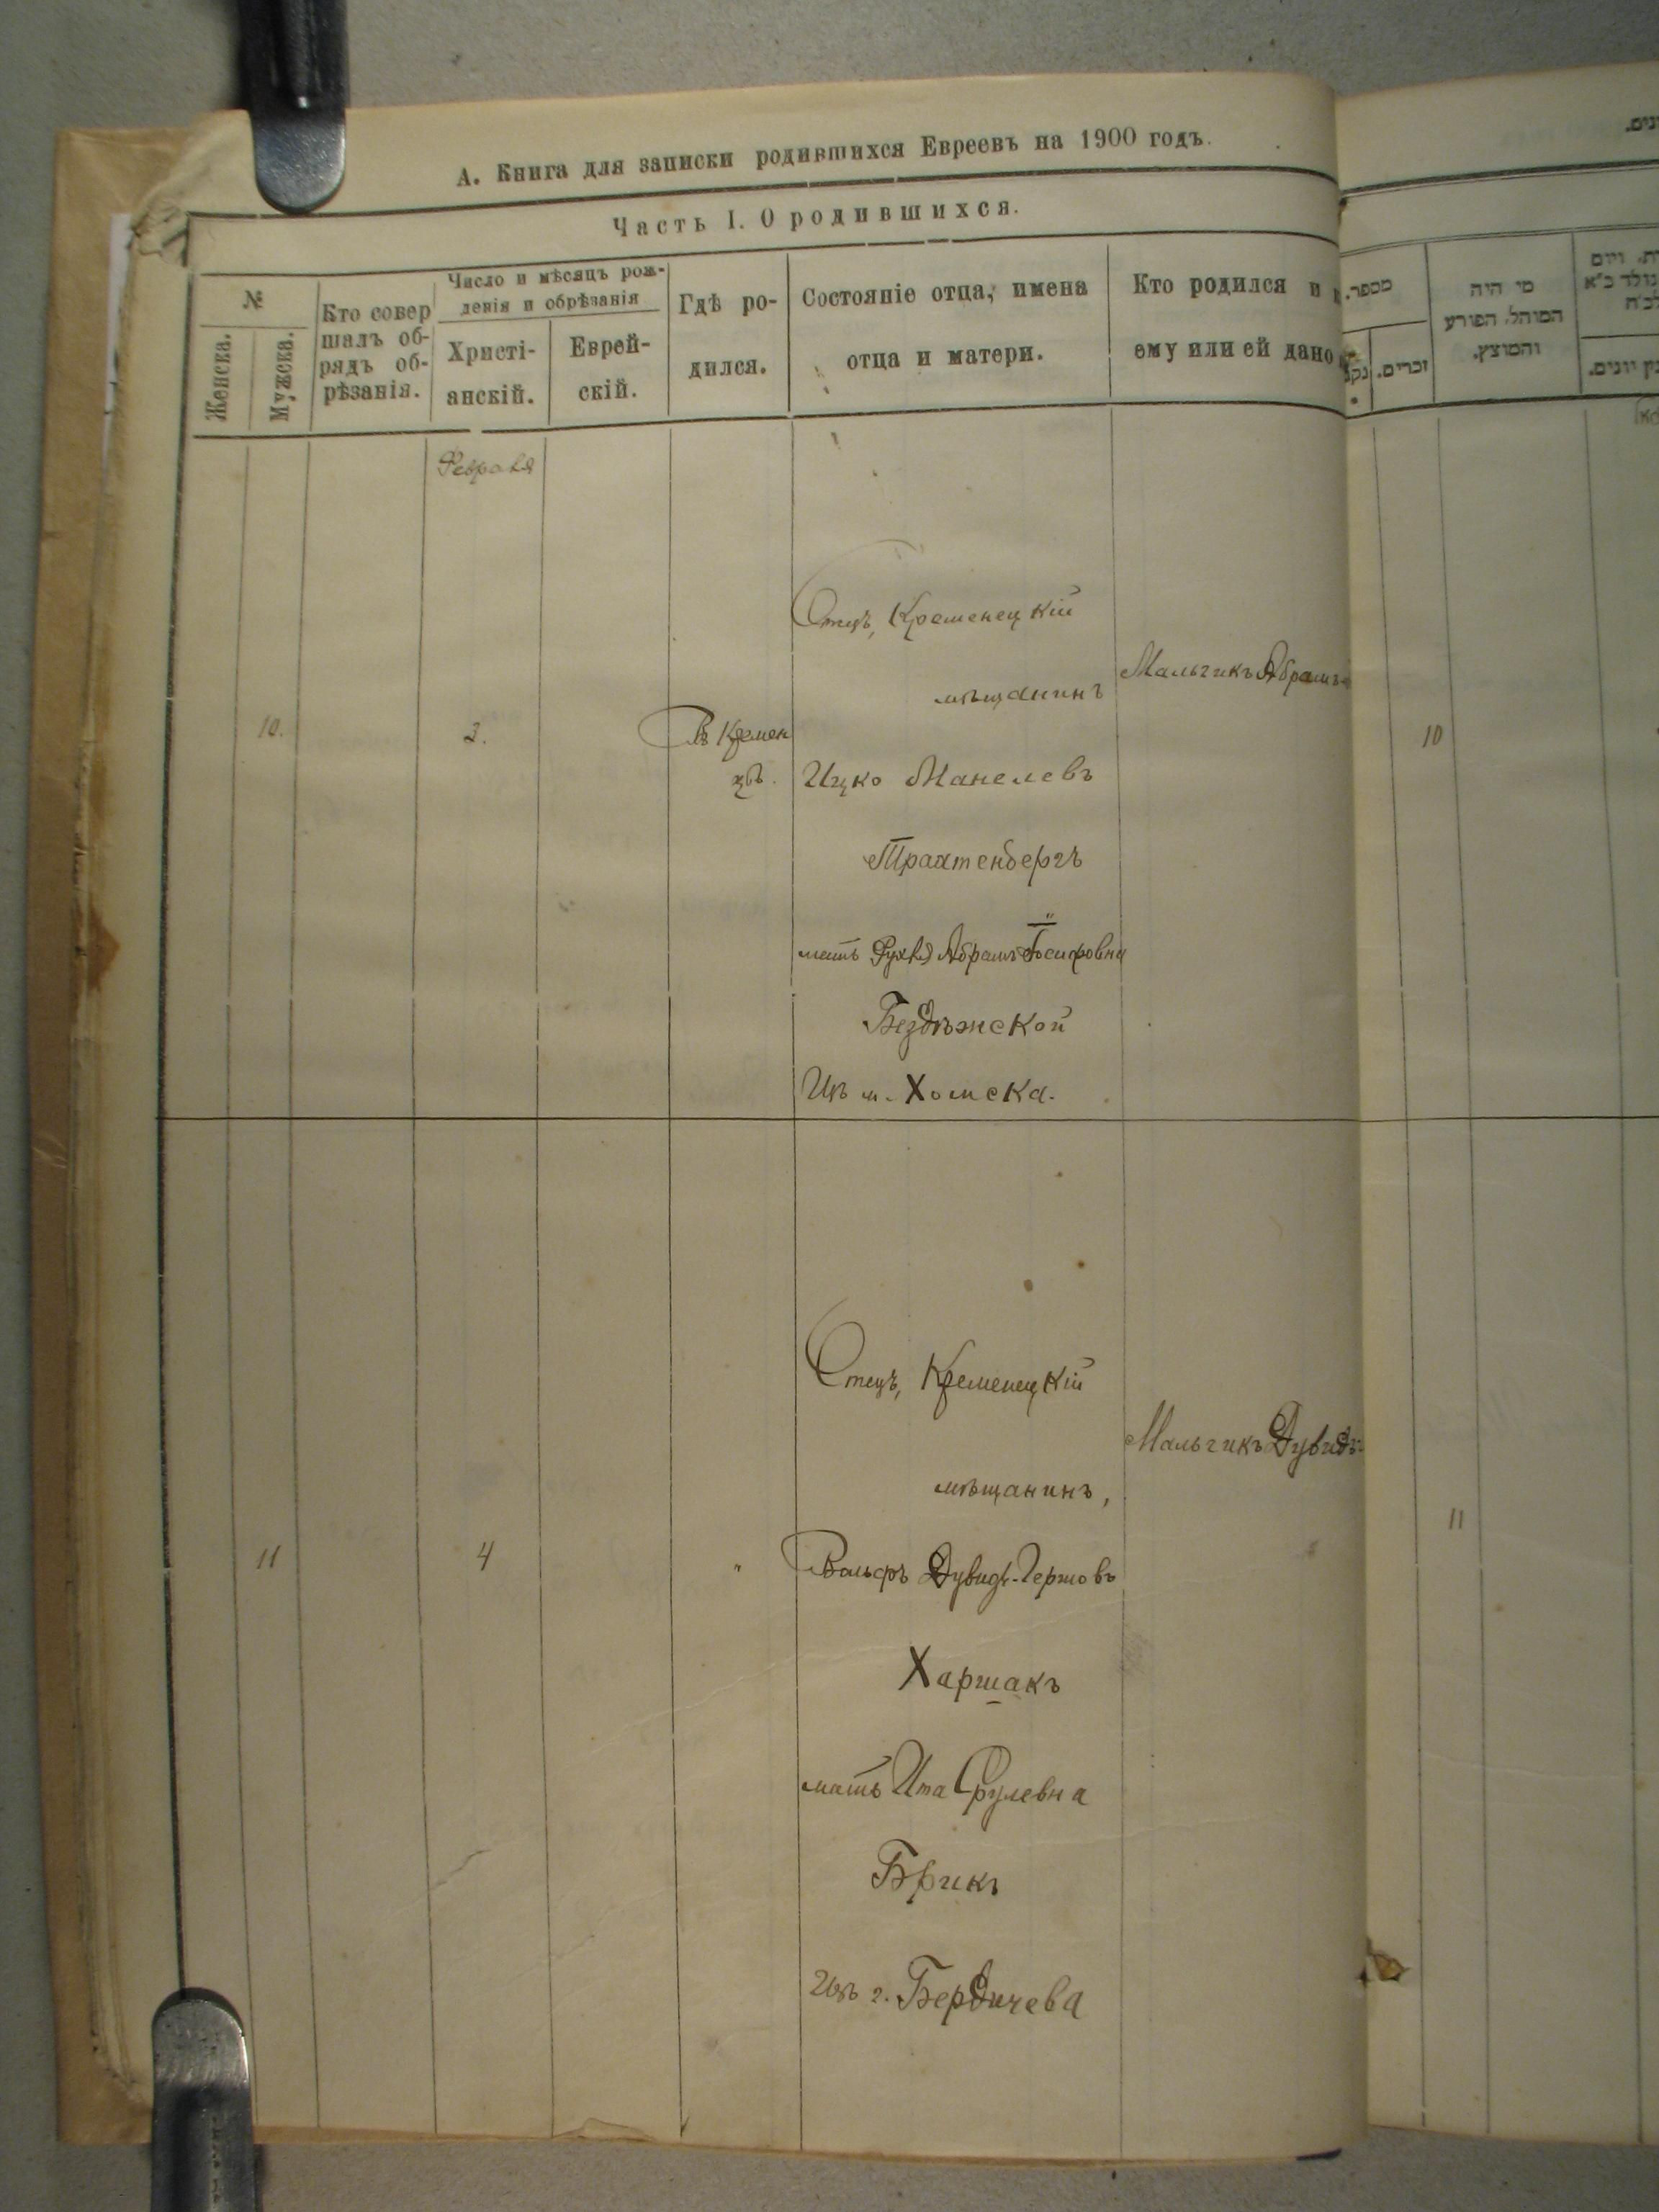 А. Книга для записки родившихся Евреевъ на 1900 годъ.
Часть I. О родившихся.
№
Женска.
Мужска.
Кто совер
шалъ об-
рядъ об-
рѣзанія.
Число и мѣсяцъ рож-
денія и обрѣзанія
Христі-
анскій.
Еврей-
скій.
Гдѣ ро-
дился.
Состояніе отца, имена
отца и матери.
Кто родился и
ему или ей дано
מספר.
זכרים.
מי היה
המוהל, הפורע
והמוצץ.
Февраля
10.
2.
Въ Кремен
цѣ.
Отецъ, Кременецкій
мѣщанинъ
Ицко Манелевъ
Трахтенбергъ
мать Рухля Абрамъ Іосифовна
Бездѣжской
Изъ м. Хомска.
Мальчикъ Абрамъ
10
11
4
"
Отецъ, Кременецкій
мѣщанинъ,
Вольфъ Дувидъ-Гершовъ
Харшакъ
мать Ита Срулевна
Брикъ
Изъ г. Бердичева
Мальчикъ Дувидъ
11